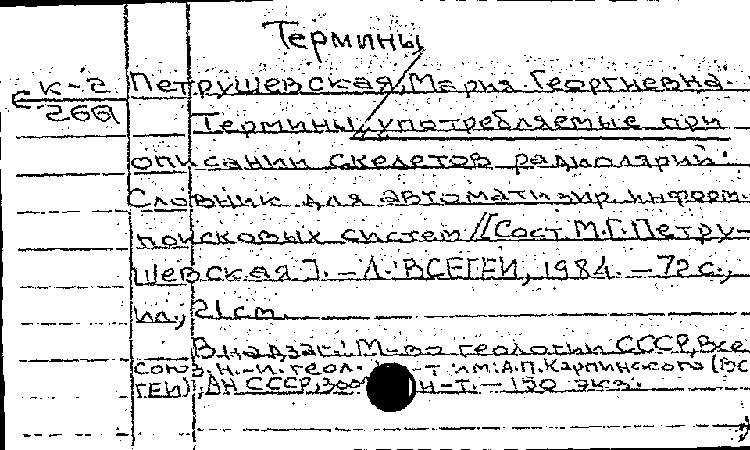 Термины
К-2 Петрушевская, Мария Георгиевна.
260 Термины, употребляемые при
описании скелетов радиолярий:
Словник для автоматизир. информ.
поисковых систем /[Сост. М.Г. Петру-
шевская]. - Л.: ВСЕГЕИ, 1984. - 72 с.,
ил., 21 cm.
В надзаг.: М-во геологии СССР, Все
союз. н.-и. геол. -т им. А.П. Карпинского (ВС
ГЕИ), АН СССР, Зоол н-т. - 150 экз.